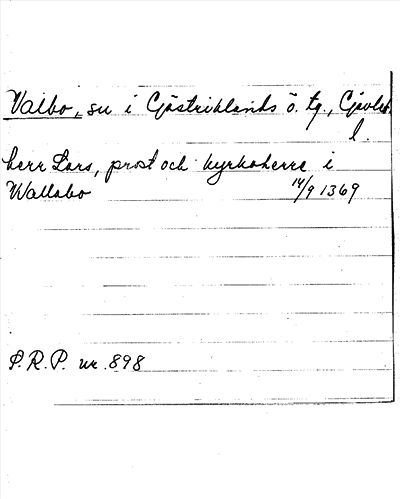 Valbo, sn i Gästriklands ö. tg., Gävleb.
l.
herr Lars, prost och kyrkoherre i
Wallabo 14/9 1369
S.R.P. nr. 898